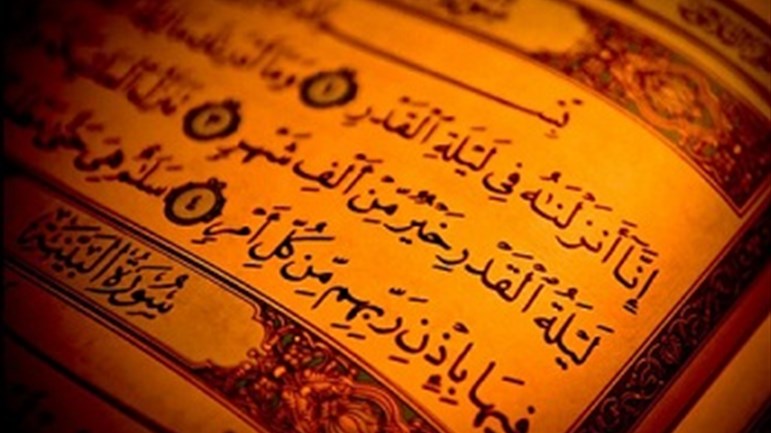 إِنَّا أَنزَلْنَٰهُ فِى لَيْلَةِ ٱلْقَدْرِ ١ وَمَآ
لَيْلَةُ ٱلْقَدْرِ خَيْرٌ مِّنْ أَلْفِ شَهْرٍ ٣ تَنَزَّلُ
فِيهَا بِإِذْنِ رَبِّهِم مِّن كُلِّ أَمْرٍ ٤ سَلَٰمٌ هِىَ حَتَّىٰ
سُورَةُ ٱلْبَيِّنَةِ